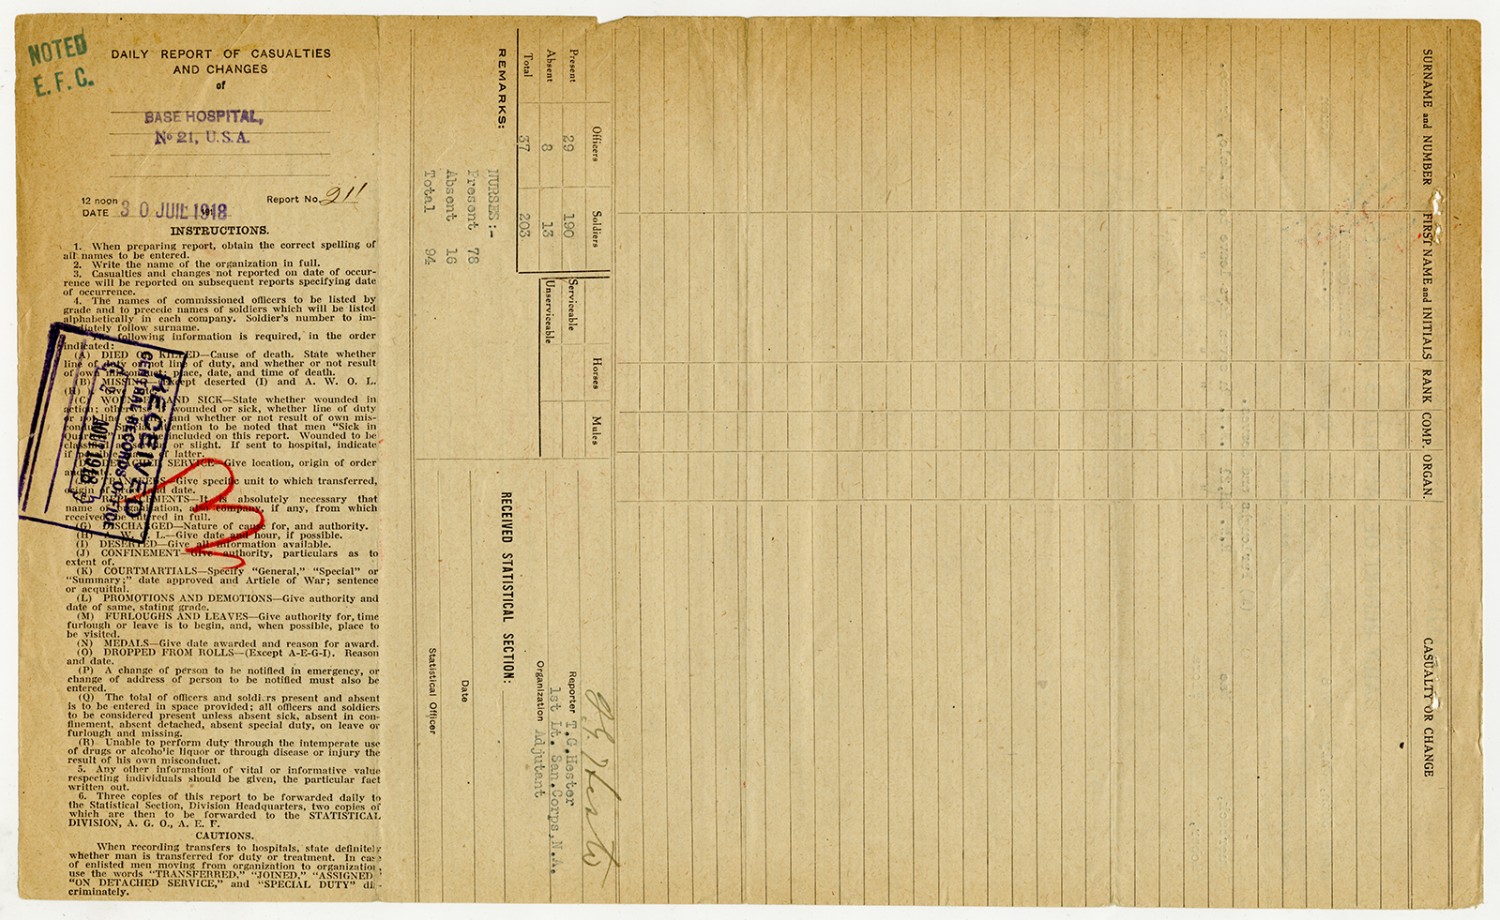 NOTED
E. F. C.
DAILY REPORT OF CASUALTIES
AND CHANGES
of
BASE HOSPITAL,
No 21, U.S.A.
12 noon
DATE 30 JUIL 1918
Report No. 211
INSTRUCTIONS.
1. When preparing report, obtain the correct spelling of
all names to be entered.
2. Write the name of the organization in full.
3. Casualties and changes not reported on date of occur-
rence will be reported on subsequent reports specifying date
of occurrence.
4. The names of commissioned officers to be listed by
grade and to precede names of soldiers which will be listed
alphabetically in each company. Soldier's number to im-
mediately follow surname.
following information is required, in the order
indicated:
(A) DIED OR KILLED—Cause of death. State whether
line of duty or not line of duty, and whether or not result
of own misconduct; place, date, and time of death.
(B) MISSING—Except deserted (I) and A. W. O. L.
(H)
(C) WOUNDED AND SICK—State whether wounded in
action; otherwise wounded or sick, whether line of duty
or not line and whether or not result of own mis-
conduct. Special attention to be noted that men "Sick in
Quarters" included on this report. Wounded to be
classified as severe or slight. If sent to hospital, indicate
if possible name of latter.
SERVICE—Give location, origin of order
and date.
TRANSFERS—Give specific unit to which transferred,
origin of order and date.
REPLACEMENTS—It is absolutely necessary that
name of organization, and company, if any, from which
received be entered in full.
(G) DISCHARGED—Nature of cause for, and authority.
(H) A. W. O. L.—Give date and hour, if possible.
(I) DESERTED—Give all information available.
(J) CONFINEMENT—Give authority, particulars as to
extent of.
(K) COURTMARTIALS—Specify "General," "Special" or
"Summary;" date approved and Article of War; sentence
or acquittal.
(L) PROMOTIONS AND DEMOTIONS—Give authority and
date of same, stating grade.
(M) FURLOUGHS AND LEAVES—Give authority for, time
furlough or leave is to begin, and, when possible, place to
be visited.
(N) MEDALS—Give date awarded and reason for award.
(O) DROPPED FROM ROLLS—(Except A-E-G-I). Reason
and date.
(P) A change of person to be notified in emergency, or
change of address of person to be notified must also be
entered.
(Q) The total of officers and soldiers present and absent
is to be entered in space provided; all officers and soldiers
to be considered present unless absent sick, absent in con-
finement, absent detached, absent special duty, on leave or
furlough and missing.
(R) Unable to perform duty through the intemperate use
of drugs or alcoholic liquor or through disease or injury the
result of his own misconduct.
5. Any other information of vital or informative value
respecting individuals should be given, the particular fact
written out.
6. Three copies of this report to be forwarded daily to
the Statistical Section, Division Headquarters, two copies of
which are then to be forwarded to the STATISTICAL
DIVISION, A. G. O., A. E. F.
CAUTIONS.
When recording transfers to hospitals, state definitely
whether man is transferred for duty or treatment. In case
of enlisted men moving from organization to organization,
use the words "TRANSFERRED," "JOINED," "ASSIGNED,"
"ON DETACHED SERVICE," and "SPECIAL DUTY" dis-
criminately.
RECEIVED
CENTRAL RECORDS OFFICE
AOU 1918
SURNAME and NUMBER FIRST NAME and INITIALS RANK COMP. ORGAN. CASUALTY OR CHANGE
Officers Soldiers Horses Mules
Present 29 190 Serviceable
Absent 8 13 Unserviceable
Total 37 203
REMARKS:
NURSES:-
Present 78
Absent 16
Total 94
T.G. Hester
Reporter T.G.Hester
1st Lt. San.Corps,N.A.
Organization Adjutant
RECEIVED STATISTICAL SECTION:
Date
Statistical Officer